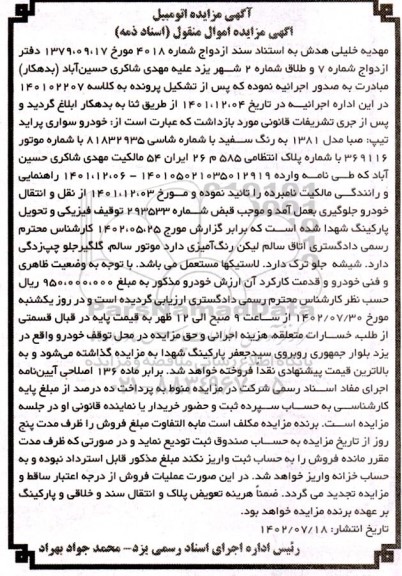 آگهی مزایده اتومبیل
آگهی مزایده اموال منقول (اسناد ذمه)
مهدیه خلیلی هدش به استناد سند ازدواج شماره ۴۰۱۸ مورخ ۱۳۷۹،۰۹،۱۷ دفتر
ازدواج شماره ۷ و طلاق شماره ۲ شهر یزد علیه مهدی شاکری حسین‌آباد (بدهکار)
مبادرت به صدور اجرائیه نموده که پس از تشکیل پرونده به کلاسه ۱۴۰۱۰۲۲۰۷
در این اداره اجرائیـــه در تاریخ ۱۴۰۱،۱۲،۰۴ از طریق ثنا به بدهکار ابلاغ گردید و
پس از جری تشریفات قانونی مورد بازداشت که عبارت است از: خودرو سواری پراید
تیپ: صبا مدل ۱۳۸۱ به رنگ سـفید با شماره شاسی ۸۱۸۳۲۹۳۵ با شماره موتور
۳۶۹۱۱۶ با شماره پلاک انتظامی ۵۸۵ م ۲۶ ایران ۵۴ مالکیت مهدی شاکری حسین
آباد که طــی نامــه وارده ۱۴۰۱۰۵۰۲۱۰۳۵۰۱۲۹۱۹ – ۱۴۰۱،۱۲،۰۶ راهنمایی
و رانندگــی مالکیت نامبرده را تائید نموده و مــورخ ۱۴۰۱،۱۲،۰۳ از نقل و انتقال
خودرو جلوگیری بعمل آمد و موجب قبض شــماره ۲۹۳۵۳۳ توقیف فیزیکی و تحویل
پارکینگ شهدا شده است که برابر گزارش مورخ ۱۴۰۲،۰۵،۲۵ کارشناس محترم
رسمی دادگستری اتاق سالم لیکن رنگ‌آمیزی دارد موتور سالم، گلگیرجلو چپ‌زدگی
دارد. شیشه جلو ترک دارد. لاستیکها مستعمل می باشد. با توجه به وضعیت ظاهری
و فنی خودرو و قدمت کارکرد آن ارزش خودرو مذکور به مبلغ ۹۵۰،۰۰۰،۰۰۰ ریال
حسب نظر کارشناس محترم رسمی دادگستری ارزیابی گردیده است و در روز یکشنبه
مورخ ۱۴۰۲/۰۷/۳۰ از ساعت ۹ صبح الی ۱۲ ظهر به قیمت پایه در قبال قسمتی
از طلب، خسارات متعلقه، هزینه اجرائی و حق مزایده در محل توقف خودرو واقع در
یزد بلوار جمهوری روبروی سیدجعفر پارکینگ شهدا به مزایده گذاشته می‌شود و به
بالاترین قیمت پیشنهادی نقدا فروخته خواهد شد. برابر ماده ۱۳۶ اصلاحی آیین‌نامه
اجرای مفاد اسـناد رسمی شرکت در مزایده منوط به پرداخت ده درصد از مبلغ پایه
کارشناسـی به حساب سـپرده ثبت و حضور خریدار یا نماینده قانونی او در جلسه
مزایده است. برنده مزایده مکلف است مابه التفاوت مبلغ فروش را ظرف مدت پنج
روز از تاریخ مزایده به حساب صندوق ثبت تودیع نماید و در صورتی که ظرف مدت
مقرر مانده فروش را به حساب ثبت واریز نکند مبلغ مذکور قابل استرداد نبوده و به
حساب خزانه واریز خواهد شد. در این صورت عملیات فروش از درجه اعتبار ساقط و
مزایده تجدید می گردد. ضمناً هزینه تعویض پلاک و انتقال سند و خلافی و پارکینگ
بر عهده برنده مزایده خواهد بود.
تاریخ انتشار: ۱۴۰۲/۰۷/۱۸
رئیس اداره اجرای اسناد رسمی یزد– محمد جواد بهراد